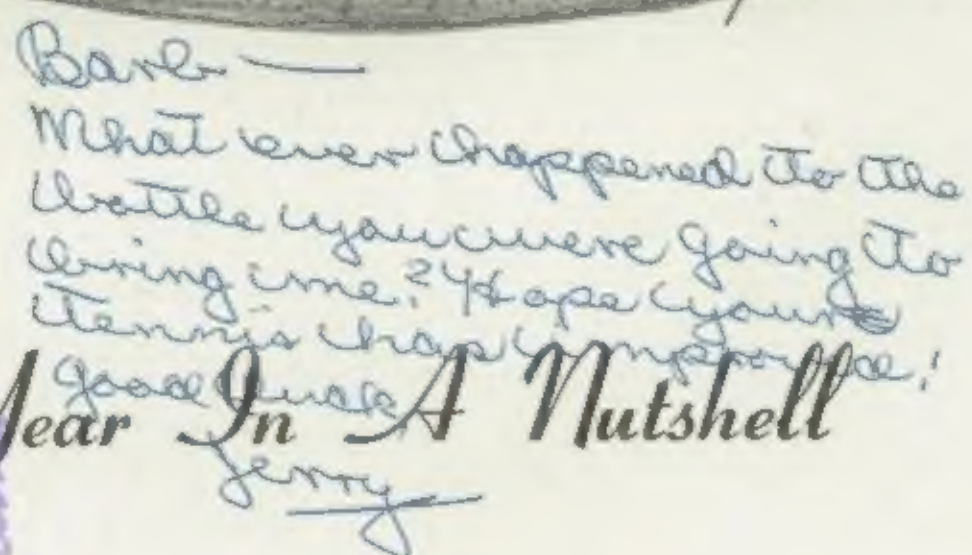 Barb —
What ever happened to the
bottle you were going to
bring me? Hope your
tennis has improved!
Good Luck
Year In A Nutshell
Jerry